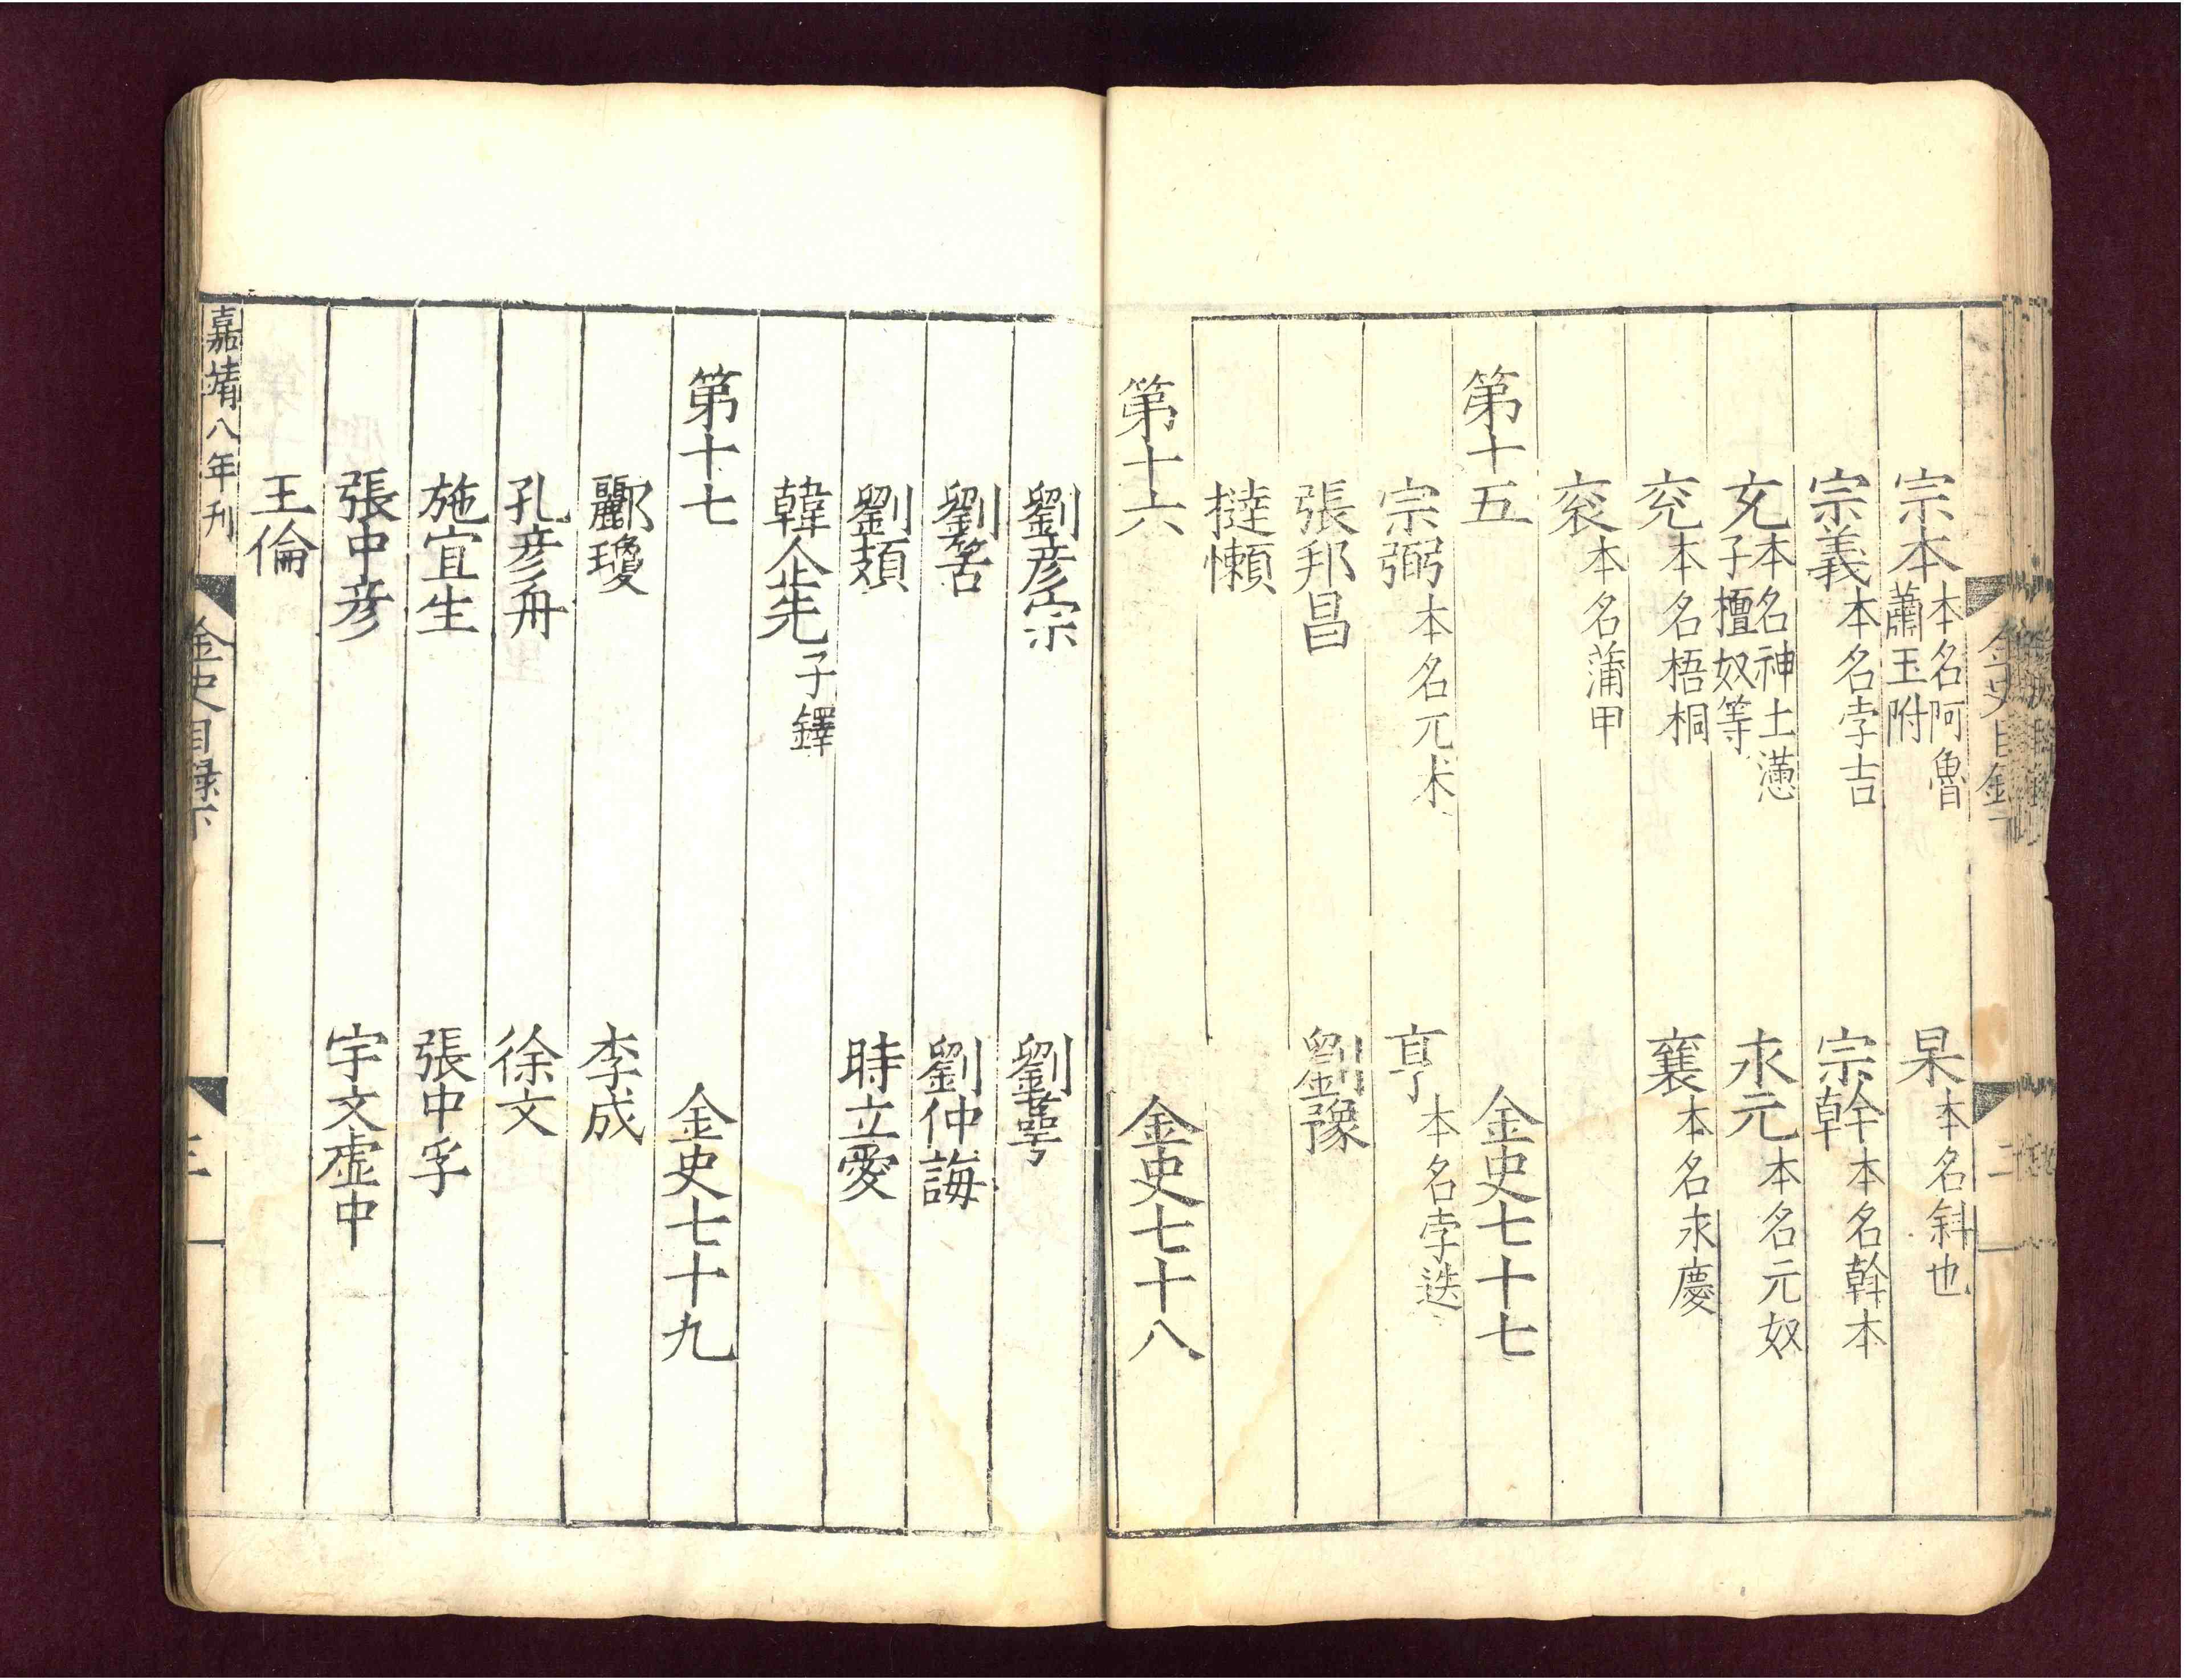 宗本 本名阿魯 蕭玉附 杲 本名斜也
宗義 本名孛吉 宗幹 本名斡本
充 本名神土懣 子檀奴等 永元 本名元奴
兖 本名梧桐 襄 本名永慶
衮 本名蒲甲
第十五 金史七十七
宗弼 本名兀朮 亨 本名孛迭
張邦昌 劉豫
撻懶
第十六 金史七十八
劉彥宗 劉萼
劉筈 劉仲誨
劉頍 時立愛
韓企先 子鐸
第十七 金史七十九
酈瓊 李成
孔彥舟 徐文
施宜生 張中孚
張中彥 宇文虛中
王倫
嘉靖八年刊 金史目錄下 三